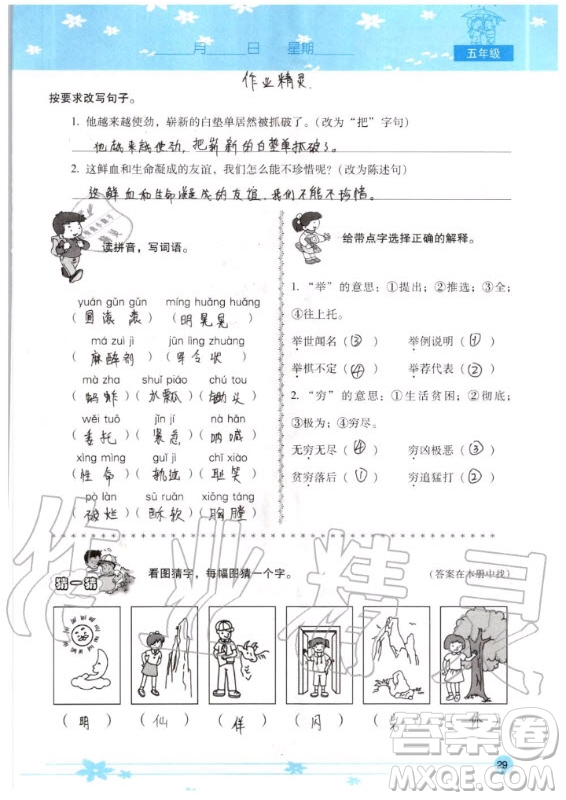 月 日 星期
五年级
作业精灵
按要求改写句子。
1. 他越来越使劲，崭新的白垫单居然被抓破了。（改为“把”字句）
他越来越使劲，把崭新的白垫单抓破了。
2. 这鲜血和生命凝成的友谊，我们怎么能不珍惜呢？（改为陈述句）
这鲜血和生命凝成的友谊，我们不能不珍惜。
读拼音，写词语。
yuán gǔn gǔn míng huǎng huǎng
（圆滚滚）（明晃晃）
má zuì jì jūn lìng zhuàng
（麻醉剂）（军令状）
mà zha shuǐ piáo chú tou
（蚂蚱）（水瓢）（锄头）
wěi tuō jǐn jí nà hǎn
（委托）（紧急）（呐喊）
xìng mìng guǐ jì chǐ xiào
（性命）（轨迹）（耻笑）
pò làn sū ruǎn xiōng táng
（破烂）（酥软）（胸膛）
给带点字选择正确的解释。
1. “举”的意思：①提出；②推选；③全；
④往上托。
举世闻名（③） 举例说明（①）
举棋不定（④） 举荐代表（②）
2. “穷”的意思：①生活贫困；②彻底；
③极为；④穷尽。
无穷无尽（④） 穷凶极恶（③）
贫穷落后（①） 穷追猛打（②）
猜一猜
看图猜字，每幅图猜一个字。
（答案在本册中找）
（明）（仙）（佯）（闪）
29
作业精灵
答案圈
MXQE.COM